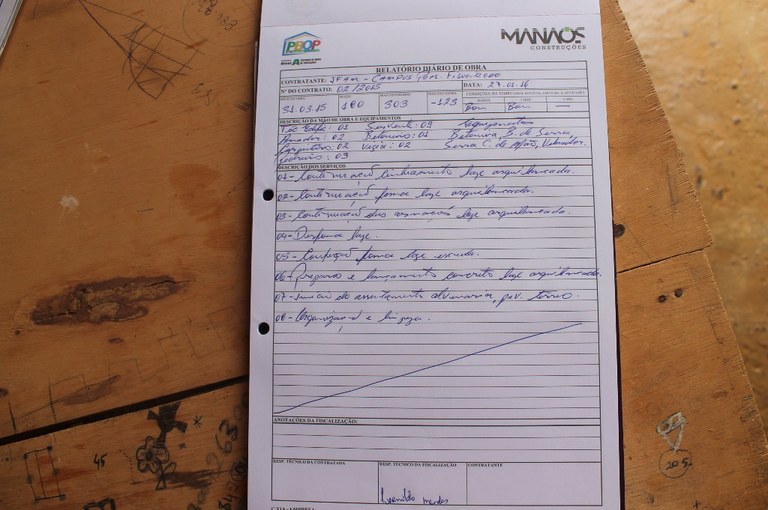 PBQP
MANAÓS
CONSTRUÇÕES
RELATÓRIO DIÁRIO DE OBRA
CONTRATANTE: IFAM - CAMPUS PRES. FIGUEIREDO
Nº DO CONTRATO: 02/2015 DATA: 27.01.16
31.03.15 180 303 -123 Bom Bom
DESCRIÇÃO DA MÃO DE OBRA E EQUIPAMENTOS
Téc Edif: 01 Servente: 09 Equipamentos
Armador: 02 Betoneiro: 01 Betoneira, B. de Serra
Carpinteiro: 02 Vigia: 02 Serra C. de Mão, Vibrador.
Pedreiro: 03
DESCRIÇÃO DOS SERVIÇOS
01 - Continuação laje arquibancada.
02 - Continuação forma laje arquibancada.
03 - Continuação das armação laje arquibancada.
04 - Desforma laje.
05 - Confecção forma laje escada.
06 - Preparo e lançamento concreto laje arquibancada.
07 - Início do assentamento alvenaria, pav. térreo.
08 - Organização e limpeza.
ANOTAÇÕES DA FISCALIZAÇÃO:
RESP. TÉCNICO DA CONTRATADA RESP. TÉCNICO DA FISCALIZAÇÃO CONTRATANTE
1ª VIA - EMPRESA
45